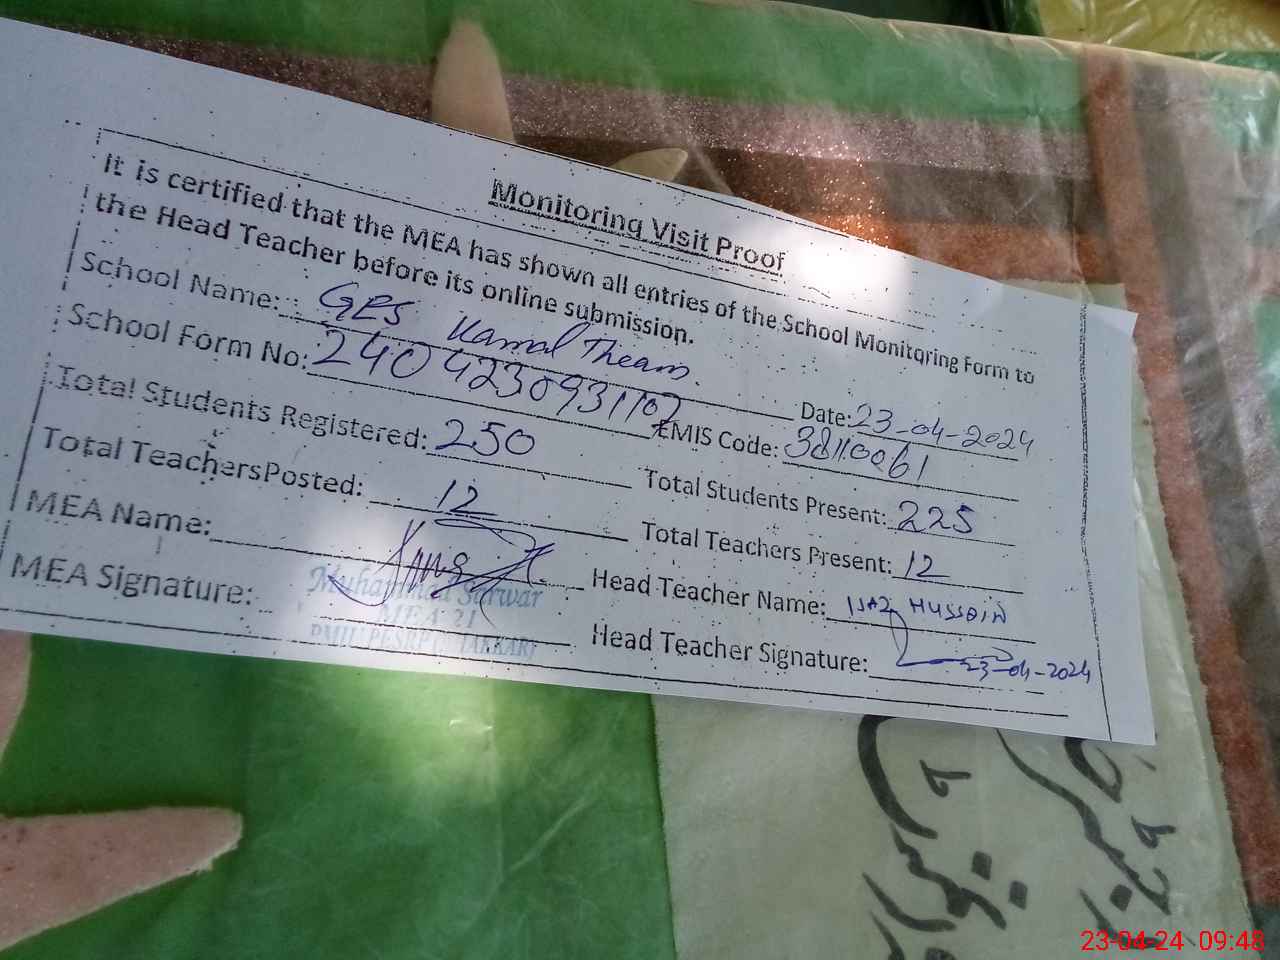 Monitoring Visit Proof
It is certified that the MEA has shown all entries of the School Monitoring Form to
the Head Teacher before its online submission.
School Name: GES Kamal Theam. Date: 23-04-2024
School Form No: 2404230931102 EMIS Code: 38110061
Total Students Registered: 250 Total Students Present: 225
Total Teachers Posted: 12 Total Teachers Present: 12
MEA Name: Head Teacher Name: IJAZ HUSSAIN
MEA Signature: Head Teacher Signature: 23-04-2024
Muhammad Sarwar
MEA 21
PMIU PESRP (BHAKKAR)
23-04-24 09:48